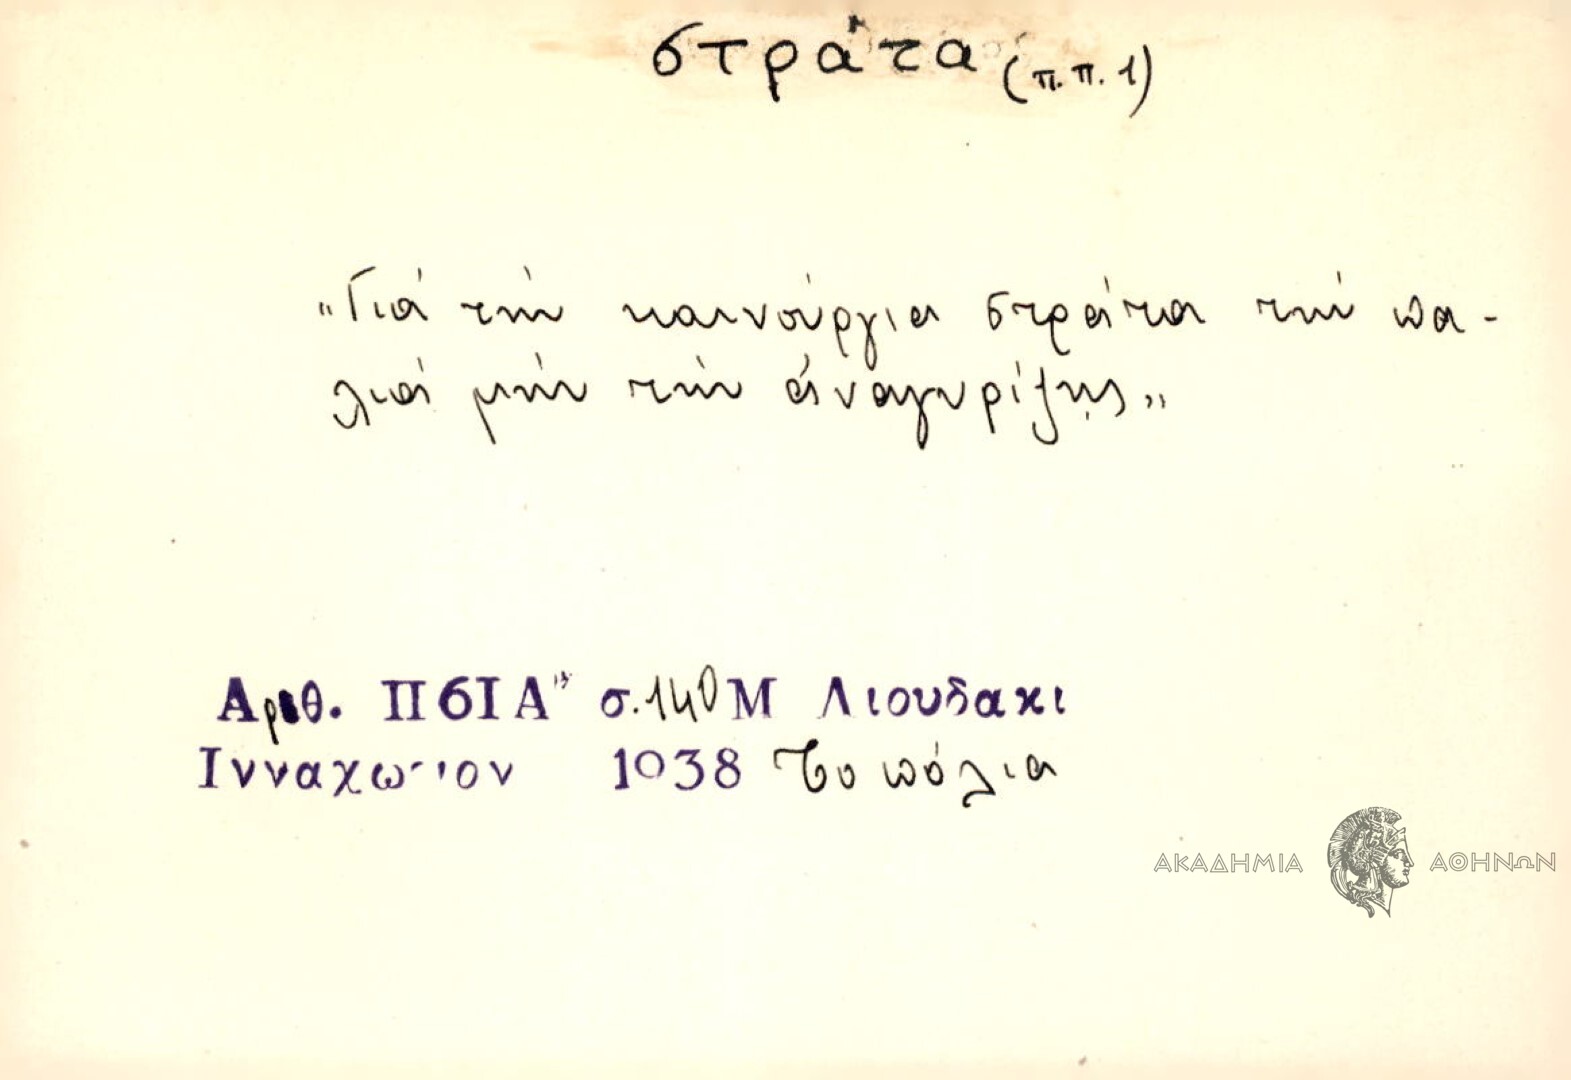 στράτα (π.π. 1)
"Γιά τήν καινούργια στράτα τήν πα-
λιά μήν τήν ἀναγυρίζῃς"
Αριθ. Π6ΙΑ" σ. 140 Μ Λιουδακι
Ινναχωριον 1938 Τοπόλια
ΑΚΑΔΗΜΙΑ ΑΘΗΝΩΝ